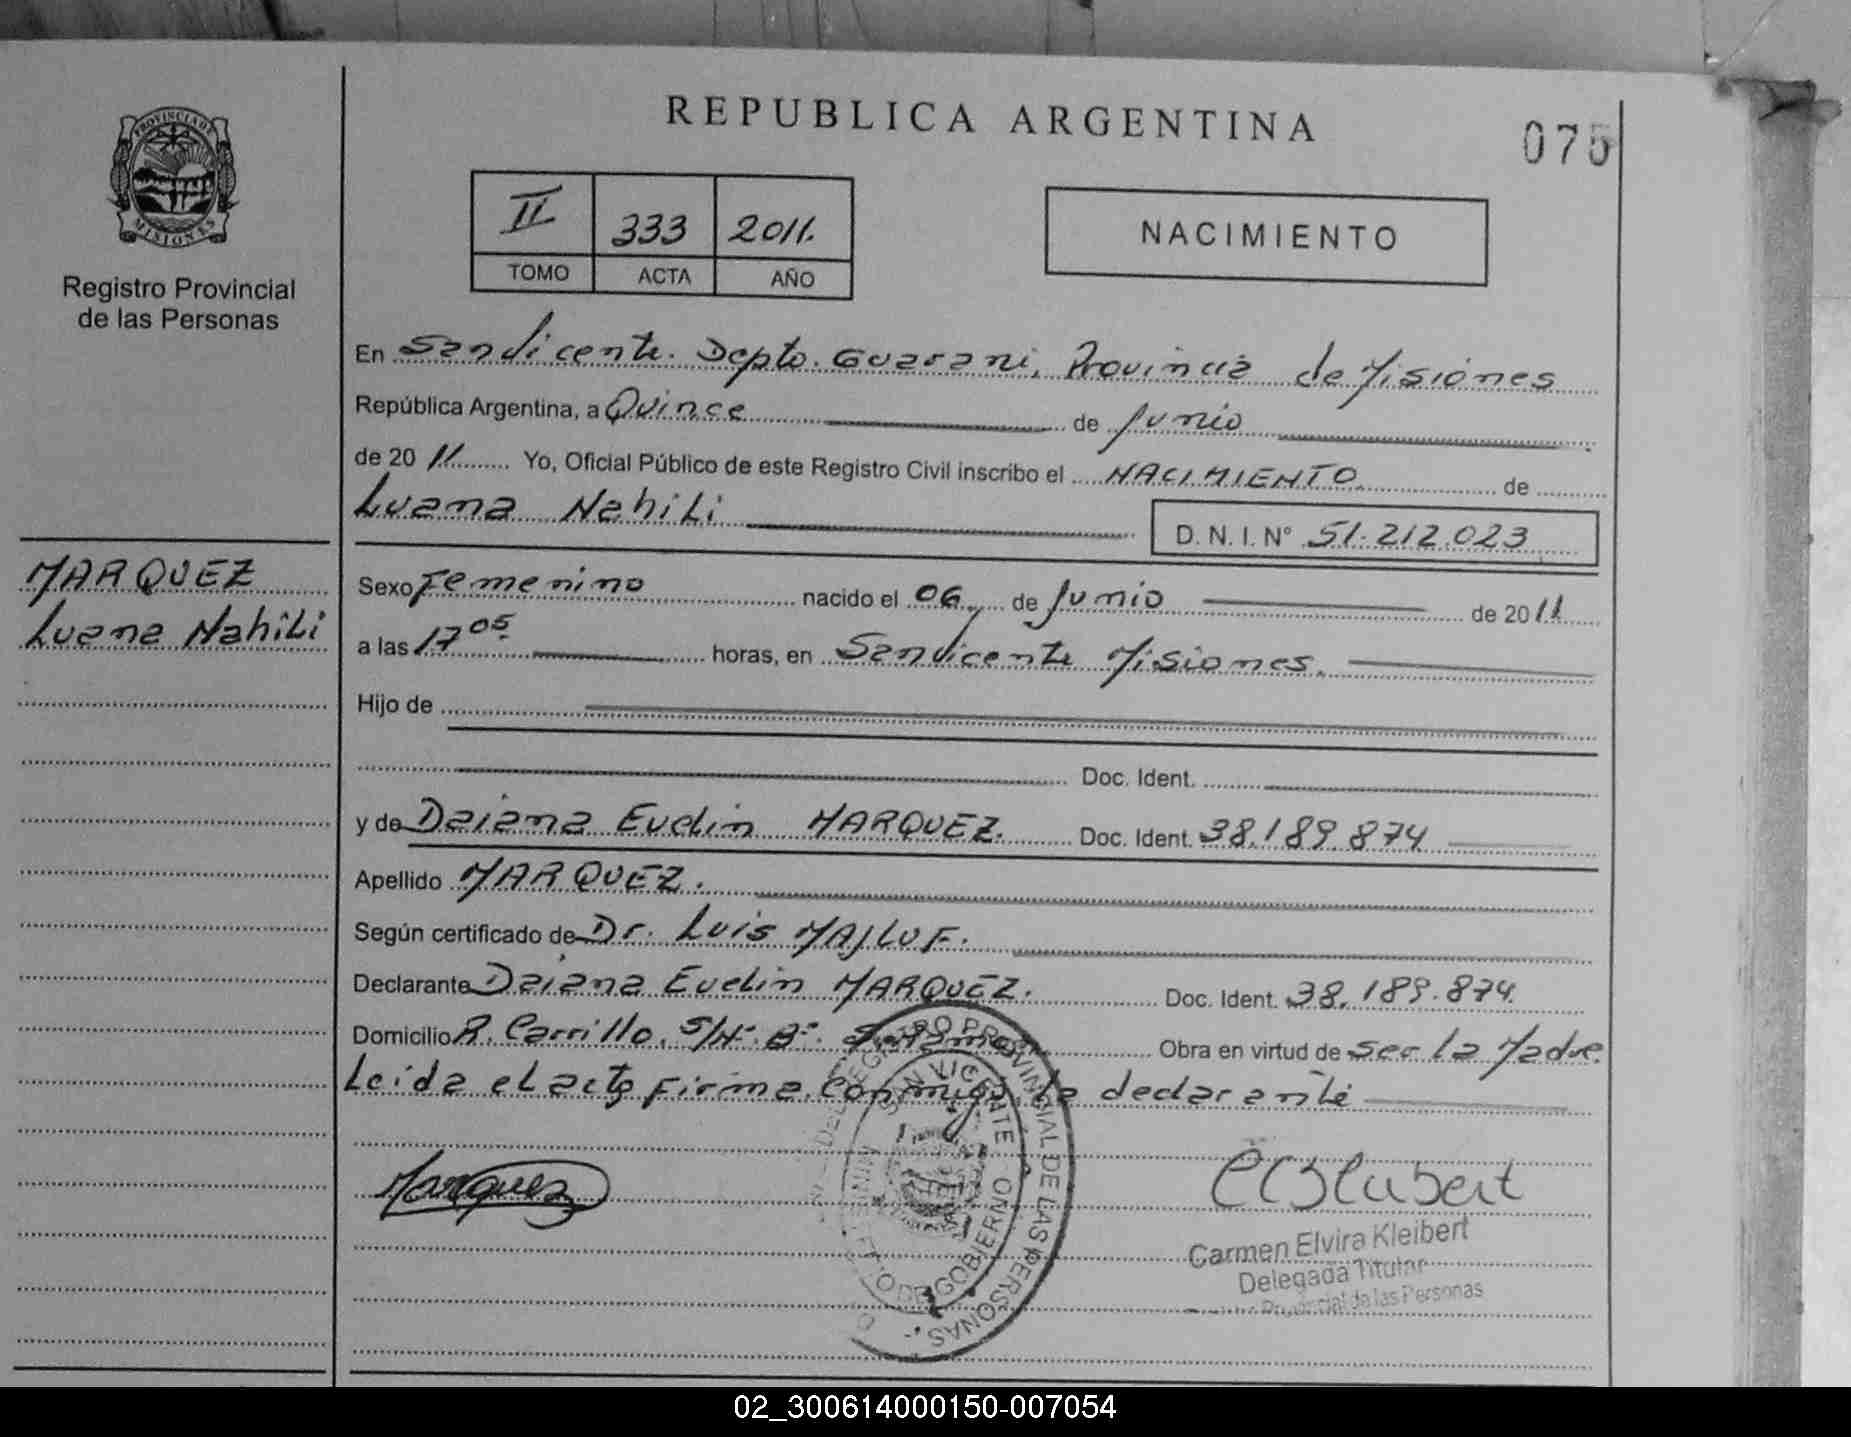 REPUBLICA ARGENTINA
075
PROVINCIA DE
MISIONES
Registro Provincial
de las Personas
II 333 2011.
TOMO ACTA AÑO
NACIMIENTO
En San Vicente. Depto. Guarani, Provincia de Misiones
República Argentina, a Quince de Junio
de 20 11 Yo, Oficial Público de este Registro Civil inscribo el NACIMIENTO de
Luana Nahili D. N. I. Nº 51.212.023
MARQUEZ
Luana Nahili
Sexo Femenino nacido el 06 de Junio de 2011
a las 17 05 horas, en San Vicente Misiones.
Hijo de
Doc. Ident.
y de Daiana Evelin MARQUEZ. Doc. Ident. 38.189.874
Apellido MARQUEZ.
Según certificado de Dr. Luis MAJLUF.
Declarante Daiana Evelin MARQUEZ. Doc. Ident. 38.189.874
Domicilio R. Carrillo. S/Nº Bº. Obra en virtud de ser la Madre.
Leida el acta firma conmigo la declarante
Marquez
REGISTRO PROVINCIAL DE LAS PERSONAS
SAN VICENTE
DE GOBIERNO
Carmen Elvira Kleibert
Delegada Titular
Provincial de las Personas
02_300614000150-007054